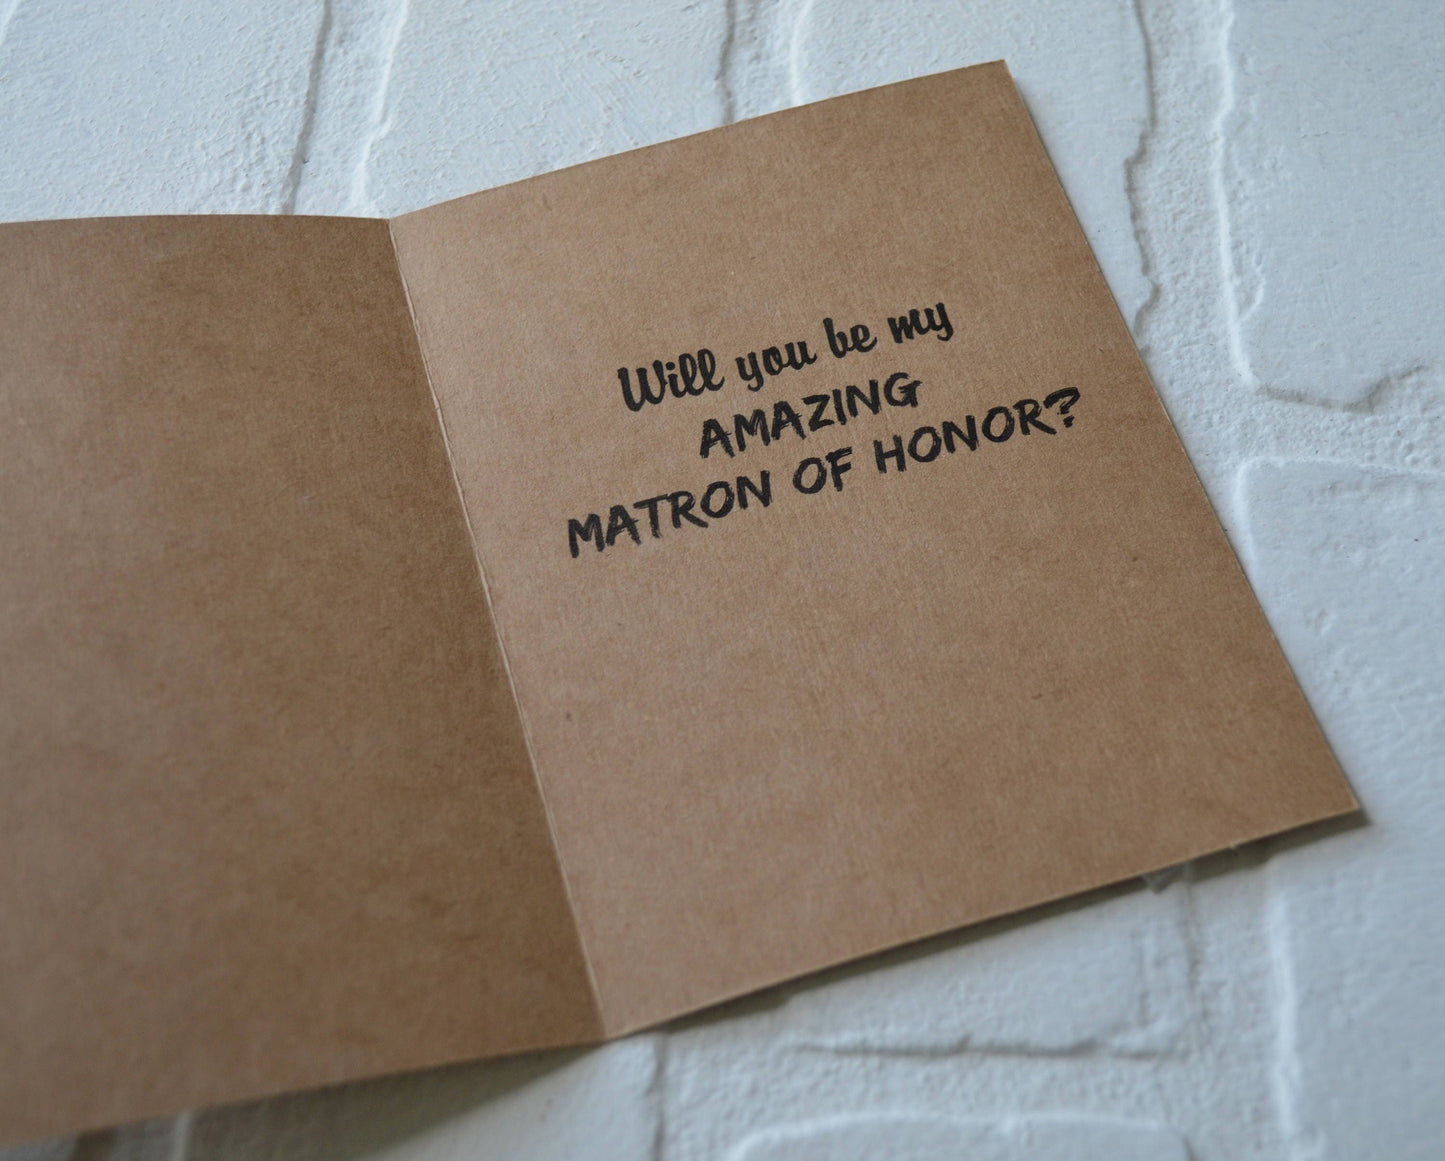 Will you be my
AMAZING
MATRON OF HONOR?